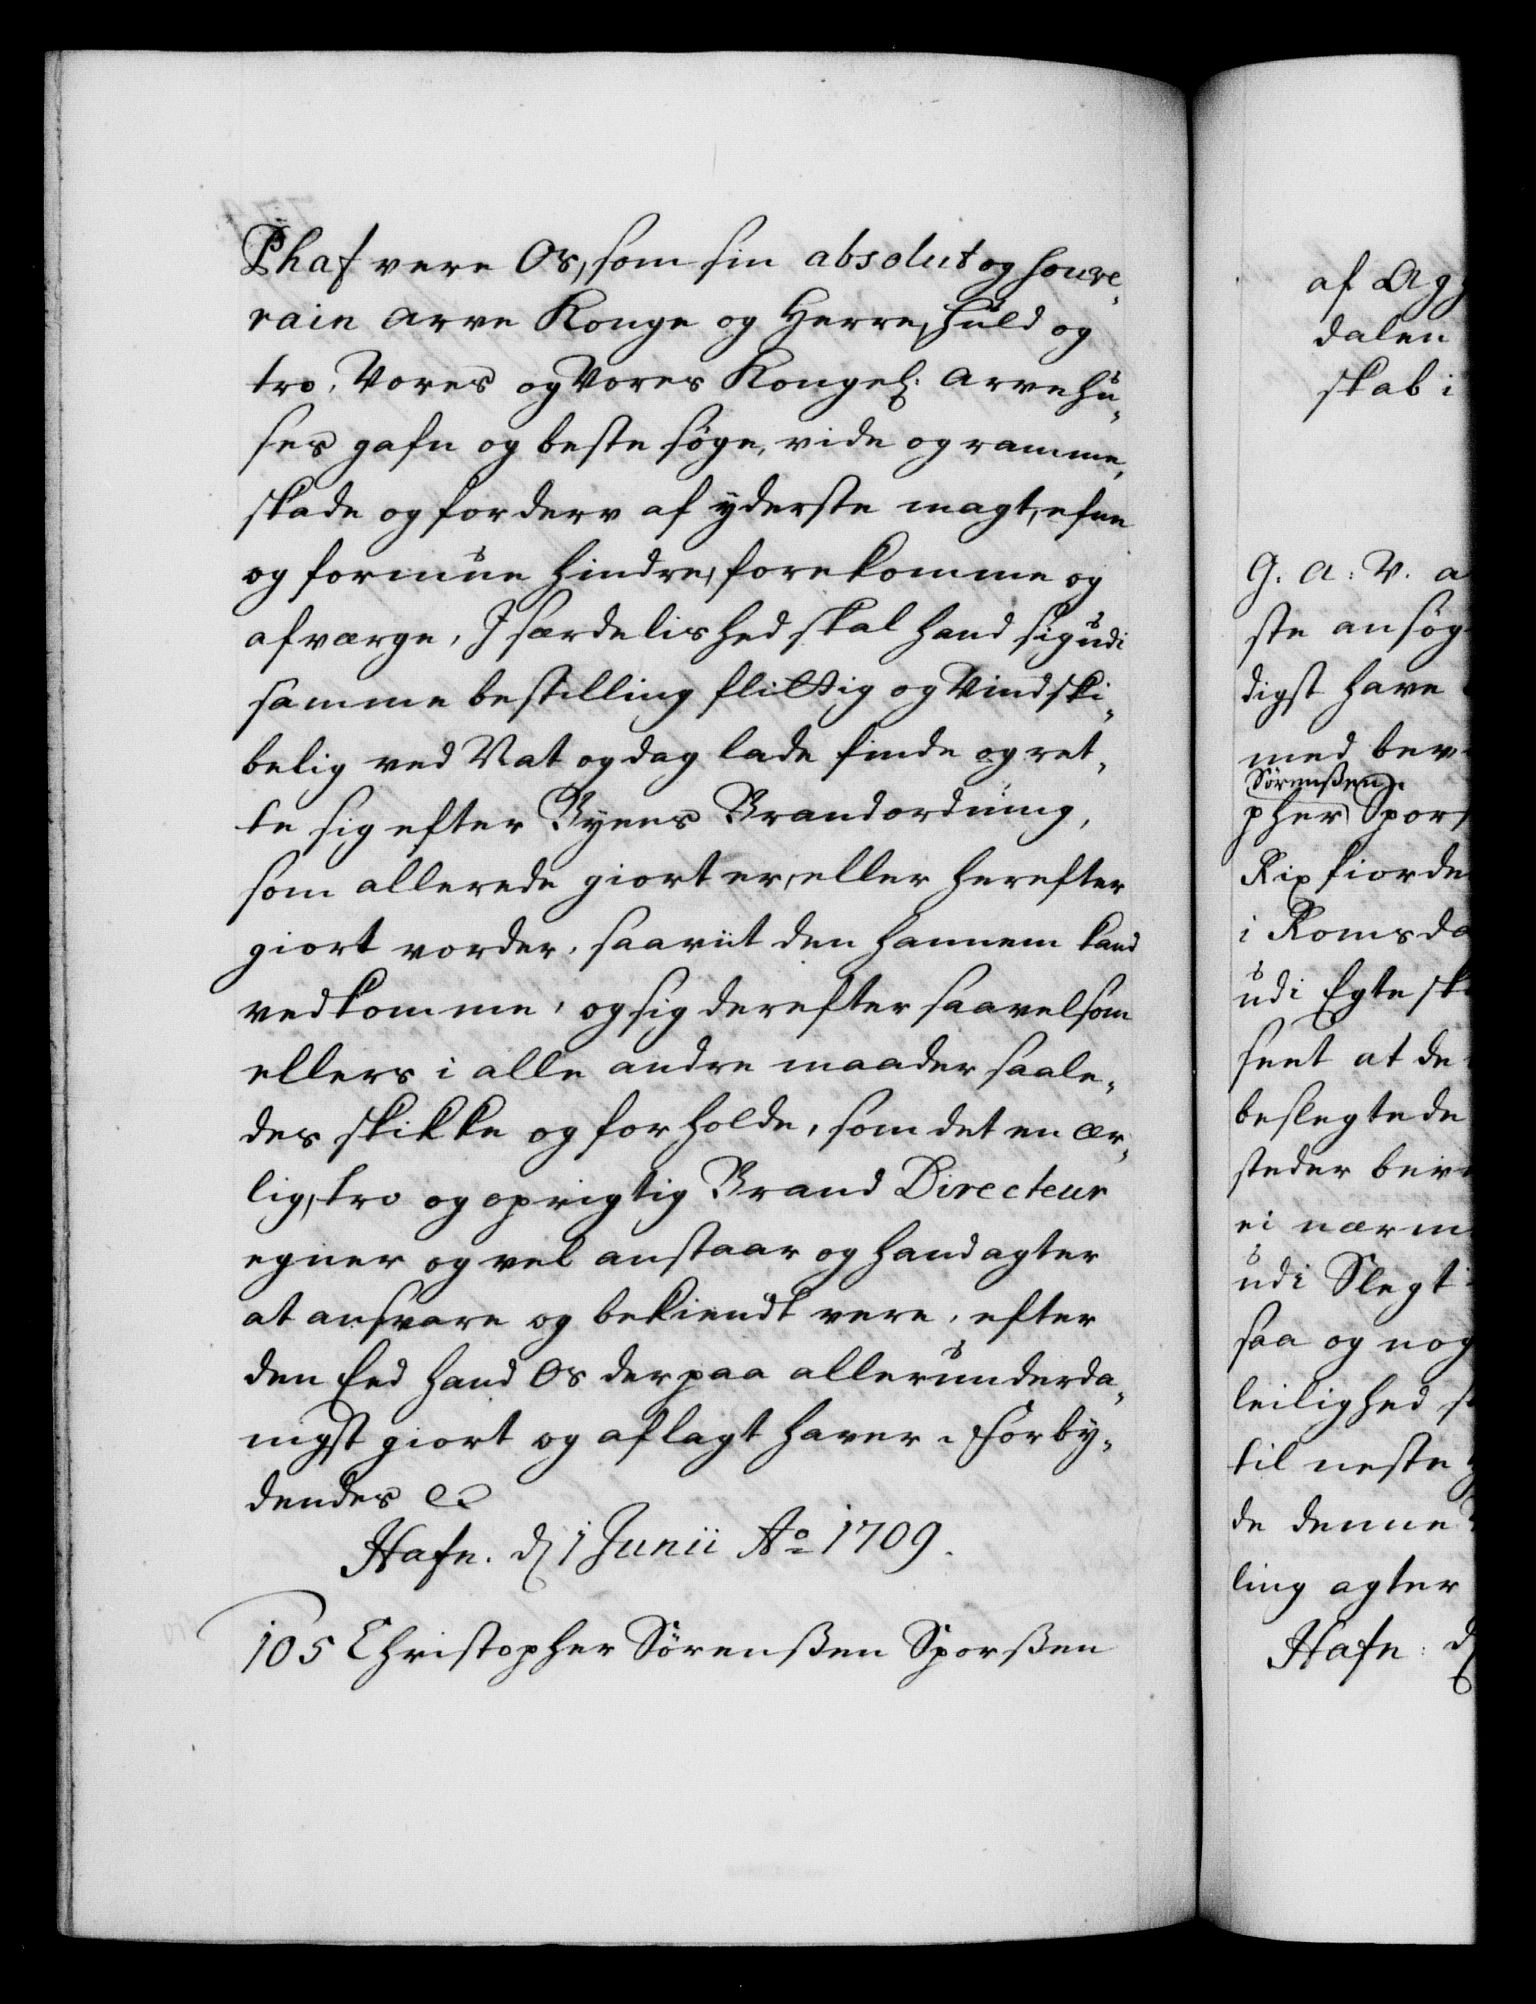 skal være Os, som sin absolut og souve-
rain Arve Konge og Herre, huld og
tro, Vores og Vores Kongel: Arvehu-
ses gafn og beste søge, vide og ramme,
skade og forderv af yderste magt, efne
og formue hindre, forekomme og
afværge, Jsærdelished skal hand sig udi
samme bestilling flittig og Vindski-
belig ved Nat og dag lade finde og ret-
te sig efter Byens Brandordning,
som allerede giort er, eller herefter
giort vorder, saaviit den hannem kand
vedkomme, og sig derefter saavelsom
ellers i alle andre maader saale-
des skikke og forholde, som det en ær-
lig, tro og oprigtig Brand Directeur
egner og vel anstaar og hand agter
at ansvare og bekiendt være, efter
den Eed hand Os derpaa allerunderda-
nigst giort og aflagt haver. Forby-
dendes &c
Hafn. d. 1 Junii Ao 1709.
105 Christopher Sørenßen Sporßen
af Agg
dalen
skab i
G. A: V. a
ste ansøg
digst have
med bev
Sørenßen
pher Spors
Rixfiorde
i Romsda
udi Egtesk
seet at de
beslegtede
steder bevi
ei nærm
udi Slegt
saa og nog
leilighed s
til neste
de denne
ling agter
Hafn: d